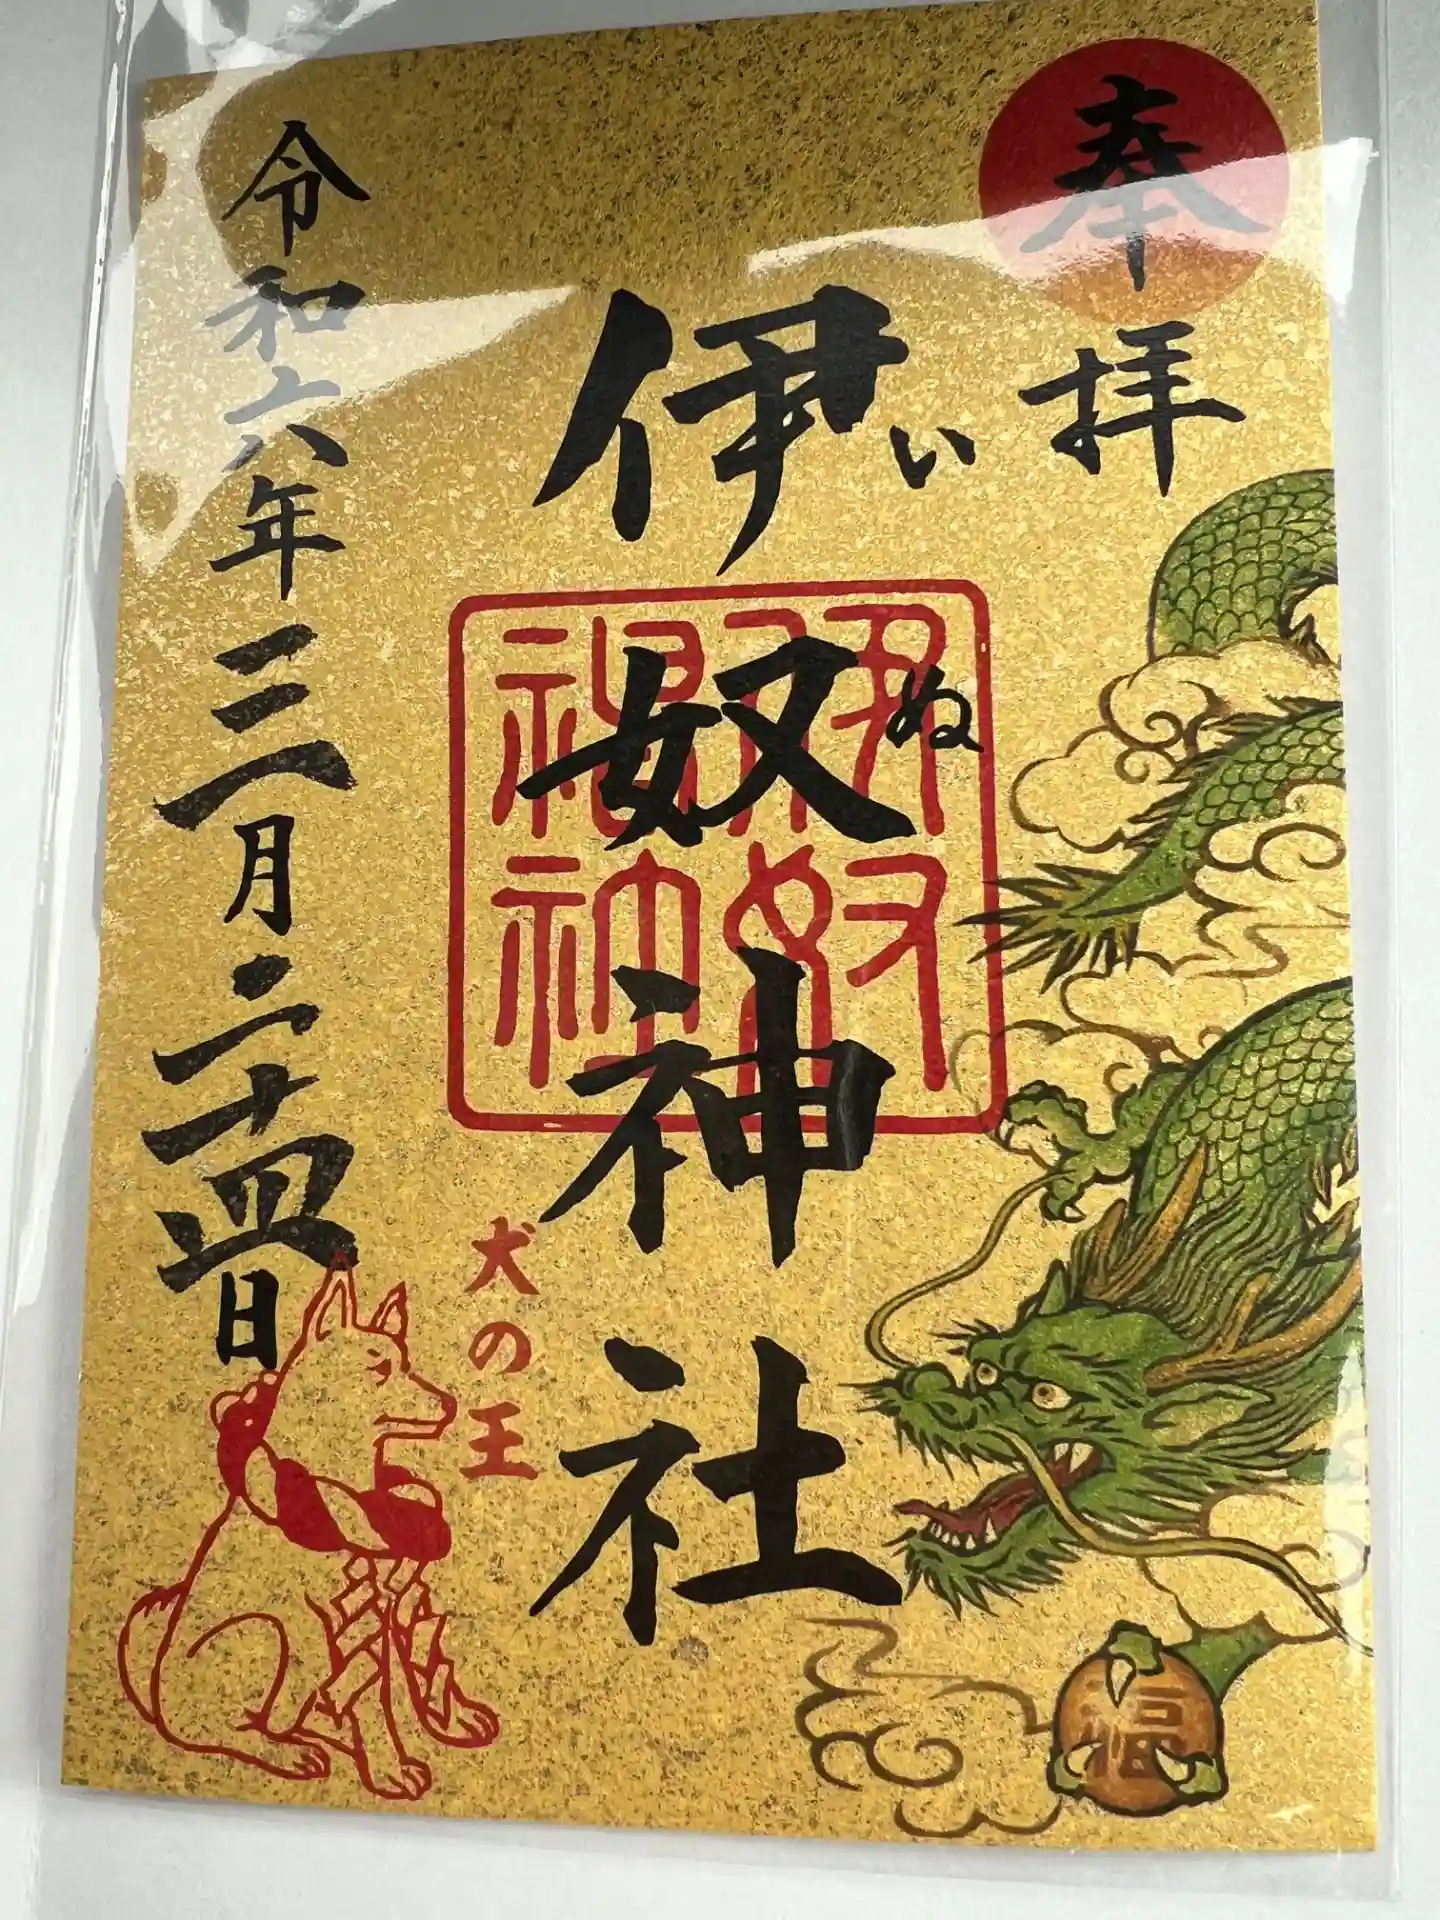 奉拝
伊奴神社
いぬ
伊奴
神社
犬の王
令和六年三月二十四日
福